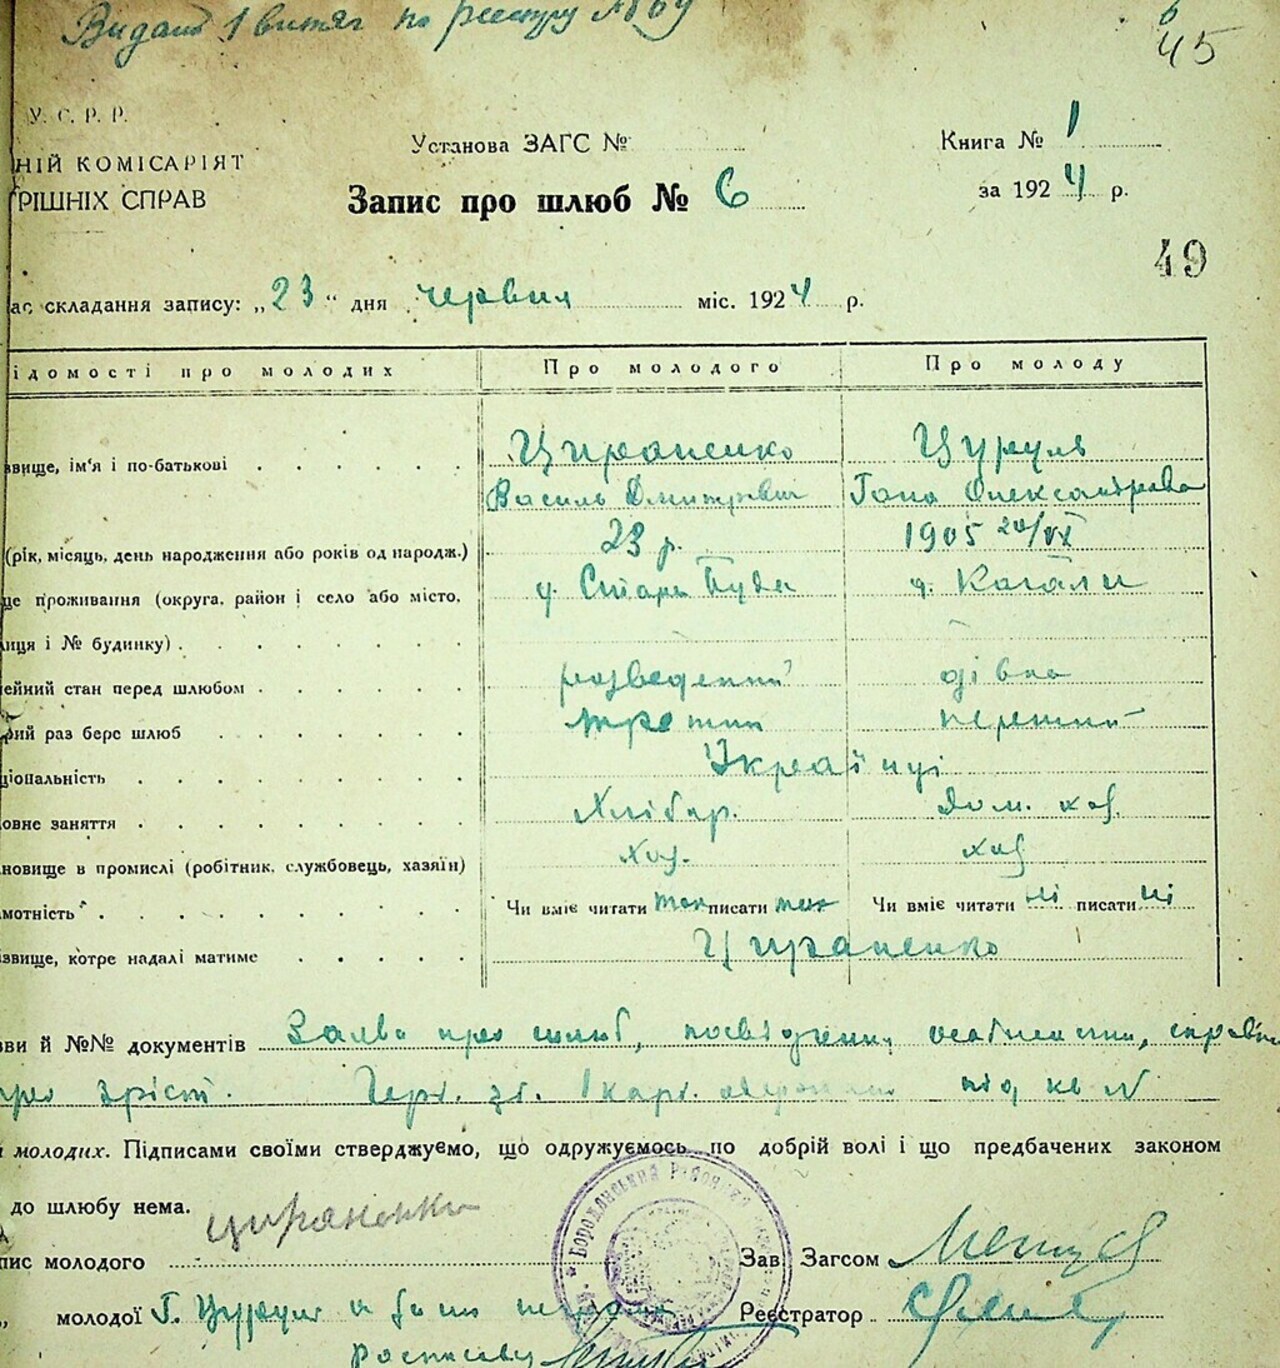 Видано 1 витяг по реєстру № 69
6
45
У. С. Р. Р.
НІЙ КОМІСАРІЯТ
РІШНІХ СПРАВ
Установа ЗАГС №
Запис про шлюб № 6
Книга № 1
за 1924 р.
49
ас складання запису: „23“ дня червня міс. 1924 р.
ідомості про молодих Про молодого Про молоду
звище, ім'я і по-батькові Цираненко Цуруль
Василь Дмитрович Гана Олександрівна
(рік, місяць, день народження або років од народж.) 23 р. 1905 20/IX
це проживання (округа, район і село або місто, с. Стара Буда
лиця і № будинку)
ейний стан перед шлюбом розведений дівка
рий раз бере шлюб третий перший
ціональність Українці
овне заняття Хлібор. Дом. хоз.
новище в промислі (робітник, службовець, хазяїн) хоз. хоз
мотність Чи вміє читати так писати так Чи вміє читати ні писати ні
звище, котре надалі матиме Цираненко
зви й №№ документів Заява про шлюб, посвідчення особистости, справки
про зріст. Герб. зб. 1 карб. під кв №
молодих. Підписами своїми стверджуємо, що одружуємось по добрій волі і що предбачених законом
до шлюбу нема.
пис молодого Цираненко
Зав. Загсом
„ молодої Г. Цуруль а за неї
Реєстратор
росписався
Бородянський Районо